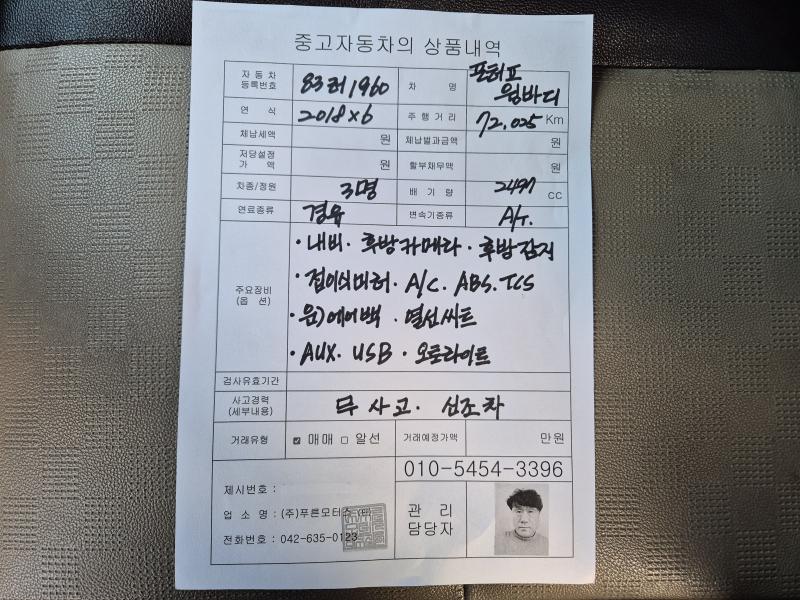 중고자동차의 상품내역
자동차 등록번호 83러1960 차 명 포터Ⅱ 윙바디
연 식 2018×6 주행거리 72,025 Km
체납세액 원 체납벌과금액 원
저당설정 가 액 원 할부채무액 원
차종/정원 3명 배 기 량 2497 CC
연료종류 경유 변속기종류 A/T.
주요장비 (옵 션)
·내비· 후방카메라 · 후방감지
·접이식미러· A/C. ABS. TCS
·운)에어백 · 열선씨트
·AUX· USB · 오토라이트
검사유효기간
사고경력 (세부내용) 무사고. 신조차
거래유형 ☑ 매매 □ 알선 거래예정가액 만원
010-5454-3396
제시번호 :
업 소 명 : (주)푸른모터스 (인)
전화번호 : 042-635-0123
관 리 담당자